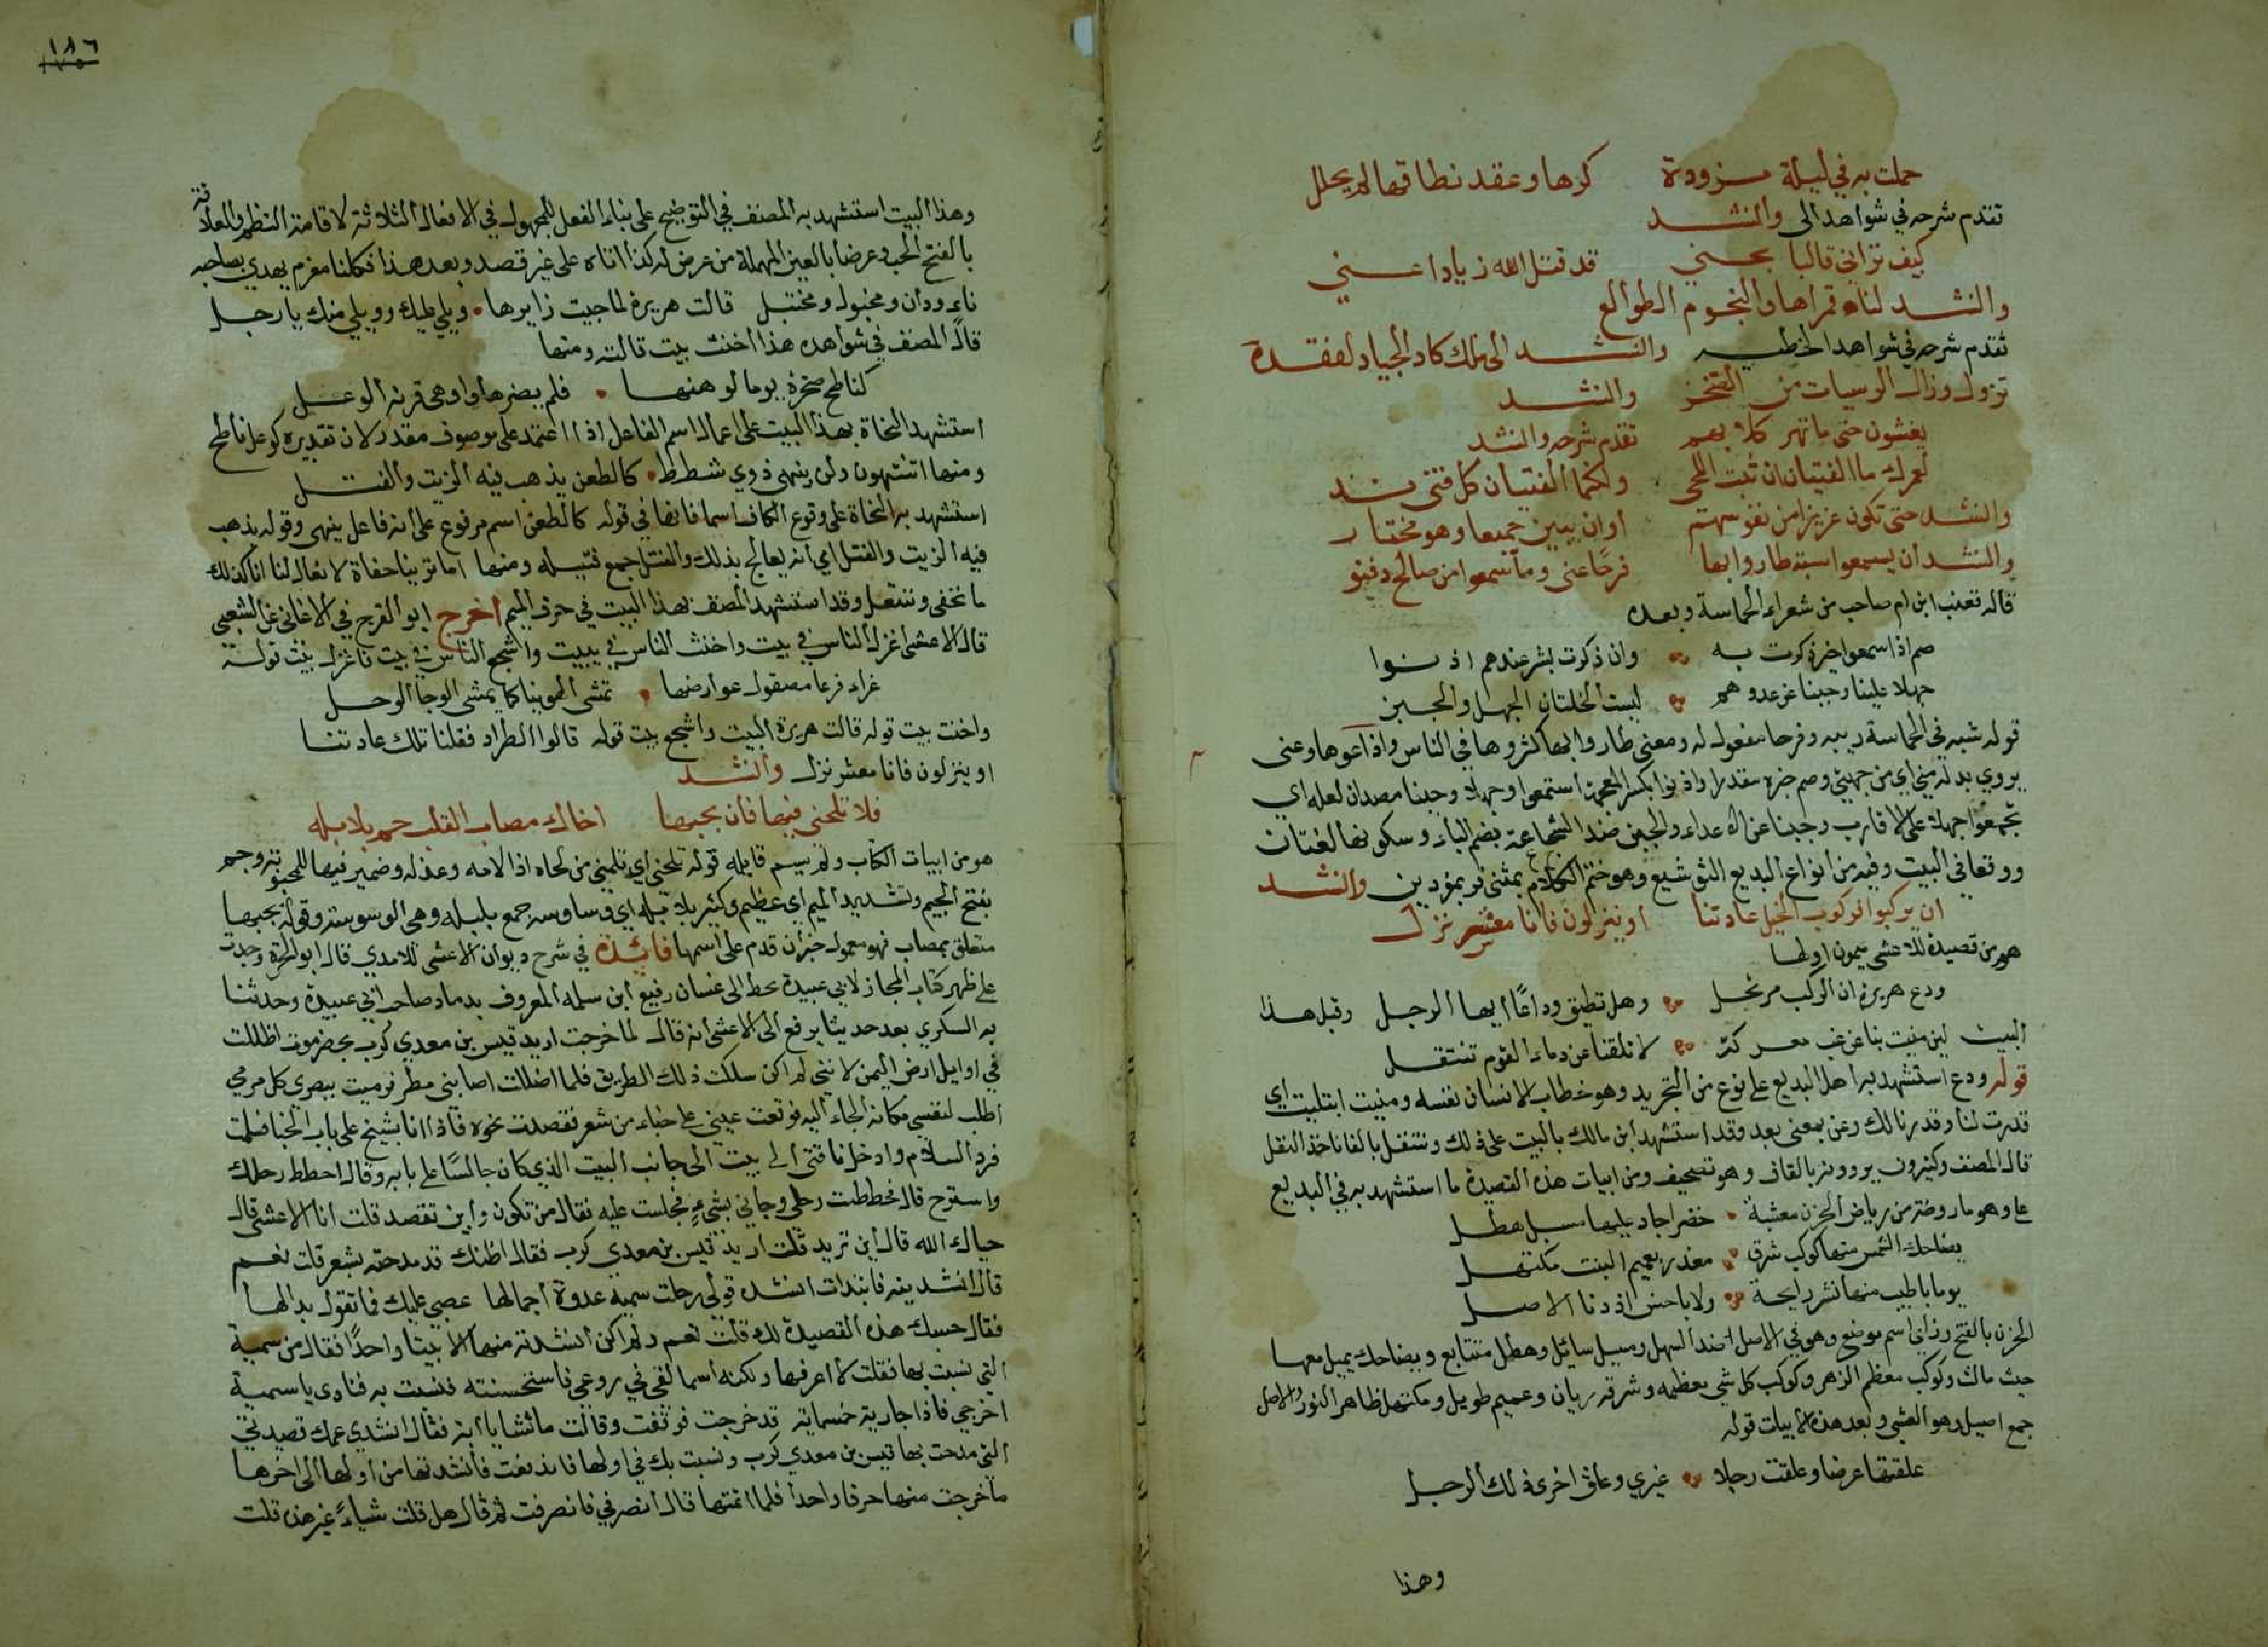 حملت به في ليلة مزودة كرها وعقد نطاقها لم يحلل
تقدم شرحه في شواهد الى وانشد
كيف تراني قالبا مجني قد قتل الله زيادا عني
وانشد لناه قمراها والنجوم الطوالع
تقدم شرحه في شواهد الخطبه وانشد الى ملك كاد الجبال لفقده
تزول وزال الرسيات من الصخر وانشد
يغشون حتى ما تهر كلابهم تقدم شرحه وانشد
لعمرك ما الفتيان ان تنبت اللحى ولكنما الفتيان كل فتى ند
وانشد حتى تكون عزيزا من نفوسهم أو ان يبين جميعا وهو مختار
وانشد ان يسمعوا سبة طاروا بها فرحًا عنى وما سمعوا من صالح دفنو
قاله قعنب ابن ام صاحب من شعراء الحماسة وبعده
صم اذا سمعوا خيرا ذكرت به وان ذكرت بشر عندهم اذنوا
جهلا علينا وجبنا عن عدوهم لبست الخلتان الجهل والجبن
قوله شبه في الحماسة ريبه وفرحا مفعول له ومعنى طاروا بها كثروها في الناس واذاعوها وعنى
يروي بدله مني اي من جهتي وصم خبره مقدرا واذنوا بكسر المعجمة استمعوا وجهلا وجبنا مصدران لعله اي
تجمعوا جهلا على الاقارب وجبنا عن الاعداء والجبن ضد الشجاعة بضم الباء وسكونها لغتان
ووقعا في البيت وفيه من انواع البديع التوشيع وهو ختم الكلام بمثنى ثم بمفردين وانشد
ان يركبوا فركوب الخيل عادتنا او ينزلون فانا معشر نزل
هو من قصيدة للاعشى ميمون اولها
ودع هريرة ان الركب مرتحل وهل تطيق وداعًا ايها الرجل وقبل هذا
البيت لين منيت بنا عن غب معركة لا تلقنا عن دماء القوم ننتفل
قوله ودع استشهد به اهل البديع على نوع من التجريد وهو خطاب الانسان نفسه ومنيت ابتليت اي
قدرت لنا وقدرنا لك وعن بمعنى بعد وقد استشهد ابن مالك بالبيت على ذلك وننتفل بالفا ناخذ النفل
قال المصنف وكثيرون يروونه بالقاف وهو تصحيف ومن ابيات هذه القصيدة ما استشهد به في البديع
على وهو ما روضة من رياض الحزن معشبة خضرا جاد عليها مسبل هطل
يضاحك الشمس منها كوكب شرق موزر بعميم النبت مكتهل
يوما باطيب منها نشر رايحة ولا باحسن اذ دنا الاصل
الحزن بالفتح وزاي اسم موضع وهو في الاصل ضد السهل ومسبل سائل وهطل متتابع ويضاحك يميل معها
حيث مالت وكوكب معظم الزهر وكوكب كل شي معظمه وشرقه ريان وعميم طويل ومكتهل ظاهر النور والاصل
جمع اصيل وهو العشي وبعد هذه الابيات قوله
علقتها عرضا وعلقت رجلا غيري وعلق اخرى ذلك الرجل
وهذا
١٨٦
وهذا البيت استشهد به المصنف في التوضيح على بناء الفعل للمجهول في الافعال الثلاثة لاقامة النظم والعلاقة
بالفتح الحب وعرضا بالعين المهملة من عرض له كذا اتاه على غير قصد وبعد هذا فكلنا مغرم يهدي بصاحبه
ناء ودان ومخبول ومختبل قالت هريرة لما جيت زايرها ويلي عليك وويلي منك يا رجل
قال المصنف في شواهده هذا اخنث بيت قالته ومنها
كناطح صخرة يوما لوهنها فلم يضرها واوهى قرنه الوعل
استشهد النحاة بهذا البيت على اعمال اسم الفاعل اذا اعتمد على موصوف مقدر لان تقديره كوعل ناطح
ومنها اتنتهون ولن ينهى ذوي شطط كالطعن يذهب فيه الزيت والفتل
استشهد به النحاة على وقوع الكاف اسما فانها في قوله كالطعن اسم مرفوع على انه فاعل ينهى وقوله يذهب
فيه الزيت والفتل اي انه يعالج بذلك والفتل جمع فتيله ومنها اما ترينا حفاة لا نعال لنا انا كذلك
ما نحفى وننتعل وقد استشهد المصنف بهذا البيت في حرف الميم اخرج ابو الفرج في الاغاني عن الشعبي
قال الاعشى اغزل الناس في بيت واخنث الناس في بيت واشجع الناس في بيت فاغزل بيت قوله
غراء فرعا مصقول عوارضها تمشي الهوينا كما يمشي الوجا الوحل
واخنث بيت قوله قالت هريرة البيت واشجع بيت قوله قالوا الطراد فقلنا تلك عادتنا
او ينزلون فانا معشر نزل وانشد
فلا تلحني فيها فان بحبها اخاك مصاب القلب جم بلابله
هو من ابيات الكتاب ولم يسم قايله قوله تلحني اي تلمني من لحاه اذا لامه وعذله وضمير فيها للمحبوبته وجم
بفتح الجيم وتشديد الميم اي عظيم وكثير بلابله اي وساوسه جمع بلبله وهي الوسوسة وقوله بحبها
متعلق بمصاب فهو معمول خبر ان قدم على اسمها فايدة في شرح ديوان الاعشى للامدي قال ابو الحرة وجدت
على ظهر كتاب المجاز لابي عبيدة بخط ابي غسان رفيع ابن سلمه المعروف بدماد صاحب ابي عبيدة وحدثنا
به السكري بعد حديثا يرفع الى الاعشى انه قال لما خرجت اريد قيس بن معدي كرب بحضرموت اظللت
في اوايل ارض اليمن لانني لم اكن سلكت ذلك الطريق فلما اضللت اصابني مطر فرميت ببصري كل مرمي
اطلب لنفسي مكانه الجاء اليه فوقعت عيني على خباء من شعر فقصدت نحوه فاذا انا بشيخ على باب الخبا فسلمت
فرد السلام وادخل ناقتي الى بيت الى جانب البيت الذي كان جالسًا على بابه وقال احطط رحلك
واسترح قال فحططت رحلي وجاني بشيء فجلست عليه فقال من تكون واين تقصد قلت انا الاعشى قال
حياك الله قال اين تريد قلت اريد قيس بن معدي كرب فقال اظنك قد مدحته بشعر قلت نعم
قال انشدينه فابتدات انشده قولي رحلت سميه غدوة اجمالها غضبى عليك فما تقول بدالها
فقال حسبك هذه القصيدة لك قلت نعم ولم اكن انشدته منها الا بيتا واحدًا فقال من سمية
التي نسبت بها فقلت لا اعرفها ولكنه اسما القي في روعي فاستحسنته فنسبت به فنادى يا سمية
اخرجي فاذا جارية خماسية قد خرجت فوقفت وقالت ما تشا يا ابة فقال انشدي عمك قصيدتي
التي مدحت بها قيس بن معدي كرب ونسبت بك في اولها فاندفعت فانشدتها من اولها الى اخرها
ما خرجت منها حرفا واحدا فلما اتمتها قال انصرفي فانصرفت ثم قال هل قلت شياءً غير هذه قلت